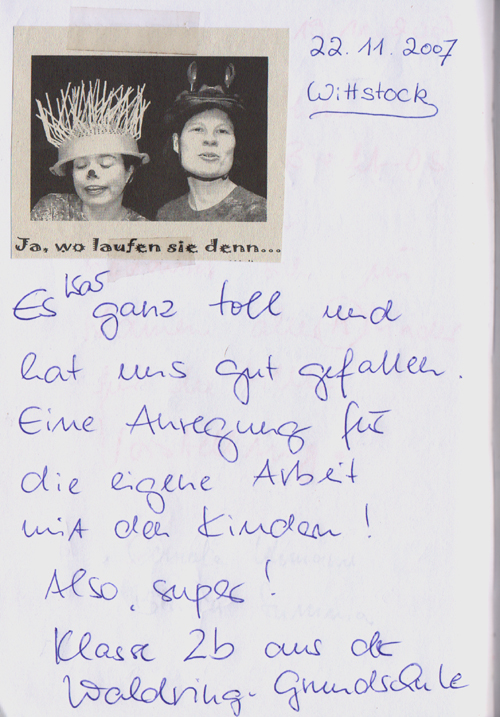 22.11.2007
Wittstock
Ja, wo laufen sie denn...
Es war ganz toll und
hat uns gut gefallen.
Eine Anregung für
die eigene Arbeit
mit den Kindern!
Also, super!
Klasse 2b aus de
Waldring-Grundschule